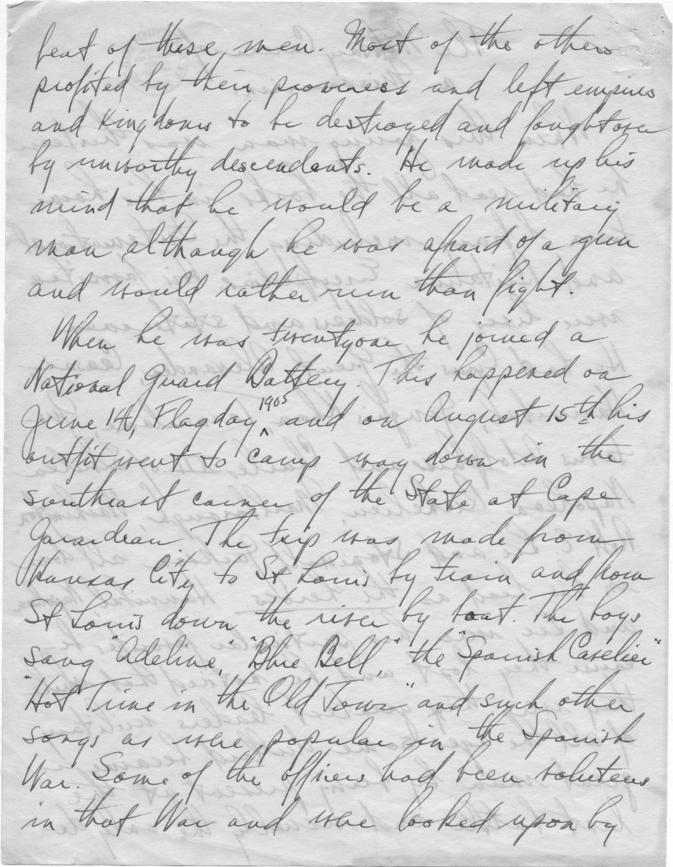 beat of these men. Most of the others
profited by their prowess and left empires
and Kingdoms to be destroyed and fought over
by unworthy descendents. He made up his
mind that he would be a military
man although he was afraid of a gun
and would rather run than fight.
When he was twentyone he joined a
National Guard Battery. This happened on
June 14, Flagday ^1905 and on August 15th his
outfit went to camp way down in the
southeast corner of the State at Cape
Garardeau. The trip was made from
Kansas City to St Louis by train and from
St Louis down the river by boat. The boys
sang "Adeline," "Blue Bell," the "Spanish Cavelier"
"Hot Time in the Old Town" and such other
songs as were popular in the Spanish
War. Some of the officers had been voluteers
in that War and were looked upon by